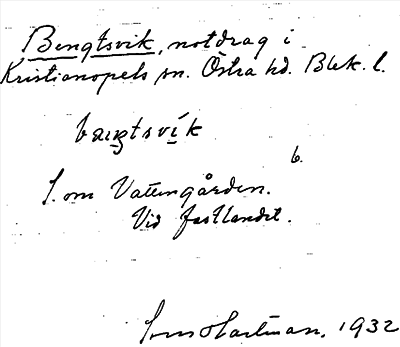 Bengtsvik, notdrag i
Kristianopels sn. Östra hd. Blek. l.
bæŋtsvík
b.
S. om Vattengården.
Vid fastlandet.
Hartman, 1932